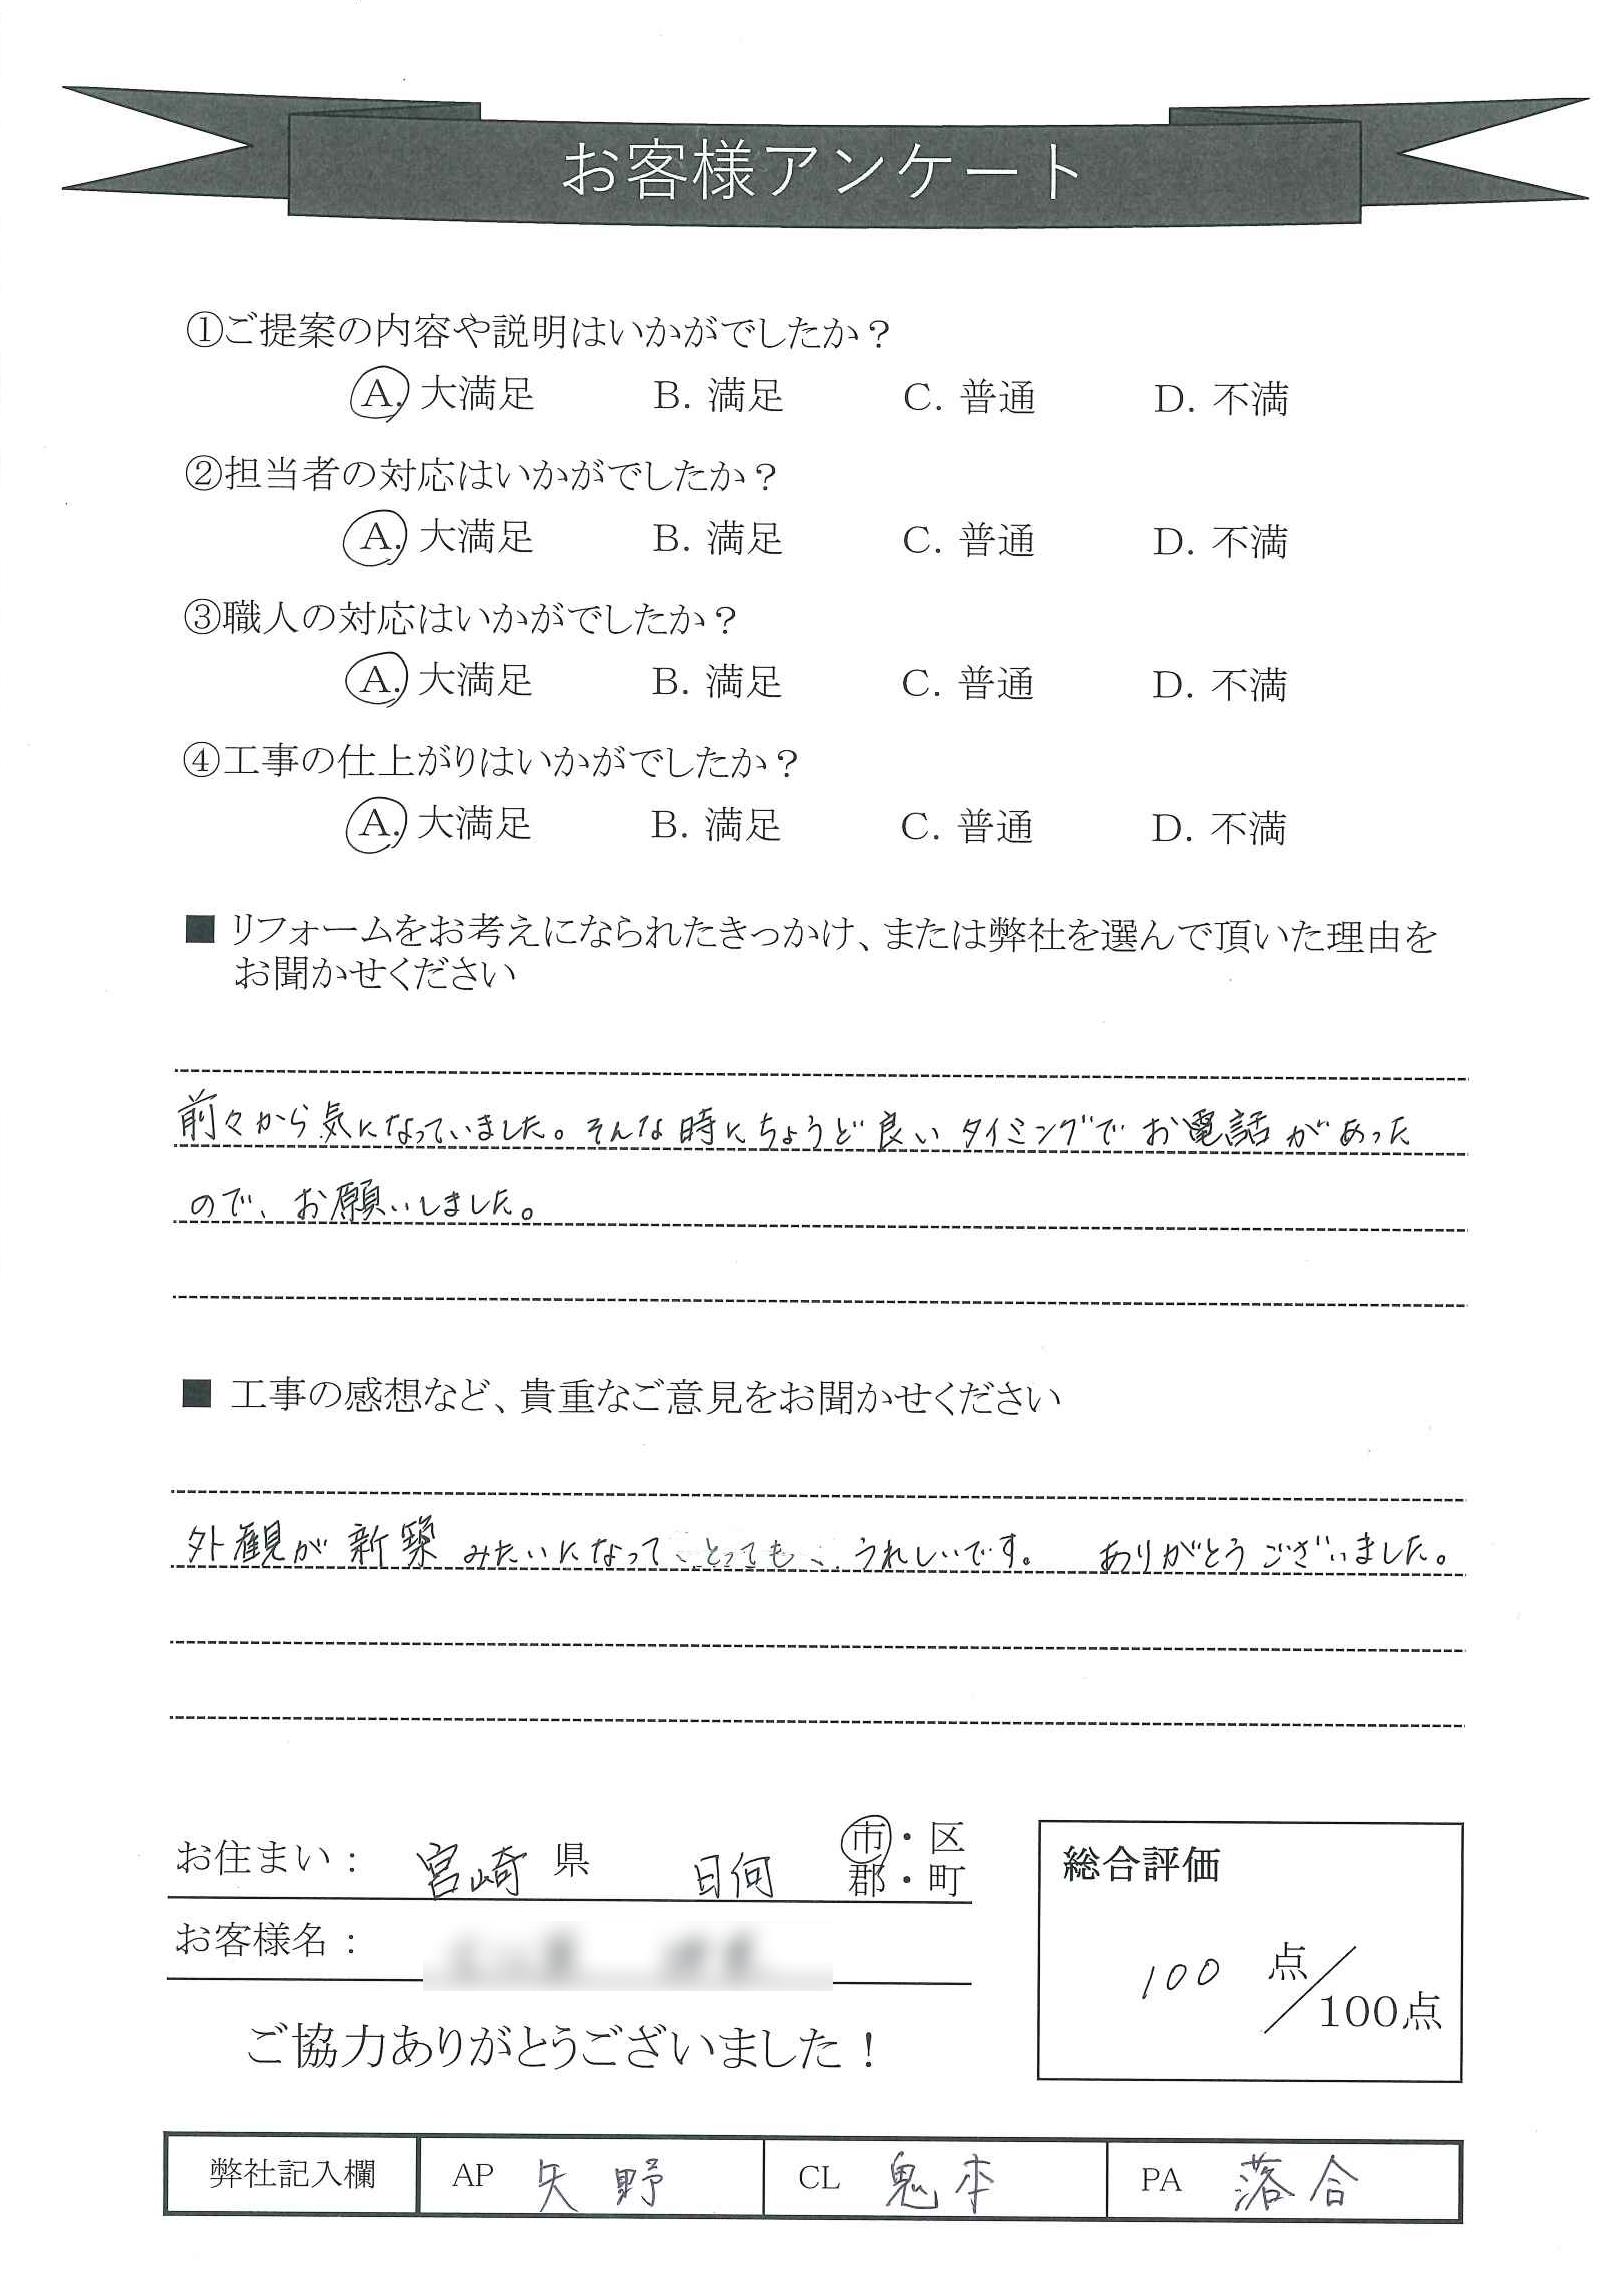 お客様アンケート
①ご提案の内容や説明はいかがでしたか？
A. 大満足 B. 満足 C. 普通 D. 不満
②担当者の対応はいかがでしたか？
A. 大満足 B. 満足 C. 普通 D. 不満
③職人の対応はいかがでしたか？
A. 大満足 B. 満足 C. 普通 D. 不満
④工事の仕上がりはいかがでしたか？
A. 大満足 B. 満足 C. 普通 D. 不満
■ リフォームをお考えになられたきっかけ、または弊社を選んで頂いた理由を
お聞かせください
前々から気になっていました。そんな時にちょうど良いタイミングでお電話があった
ので、お願いしました。
■ 工事の感想など、貴重なご意見をお聞かせください
外観が新築みたいになって、とっても、うれしいです。 ありがとうございました。
お住まい： 宮崎 県 日向 市・区
郡・町
お客様名：
ご協力ありがとうございました！
総合評価
100 点／100点
弊社記入欄 AP 矢野 CL 鬼本 PA 落合